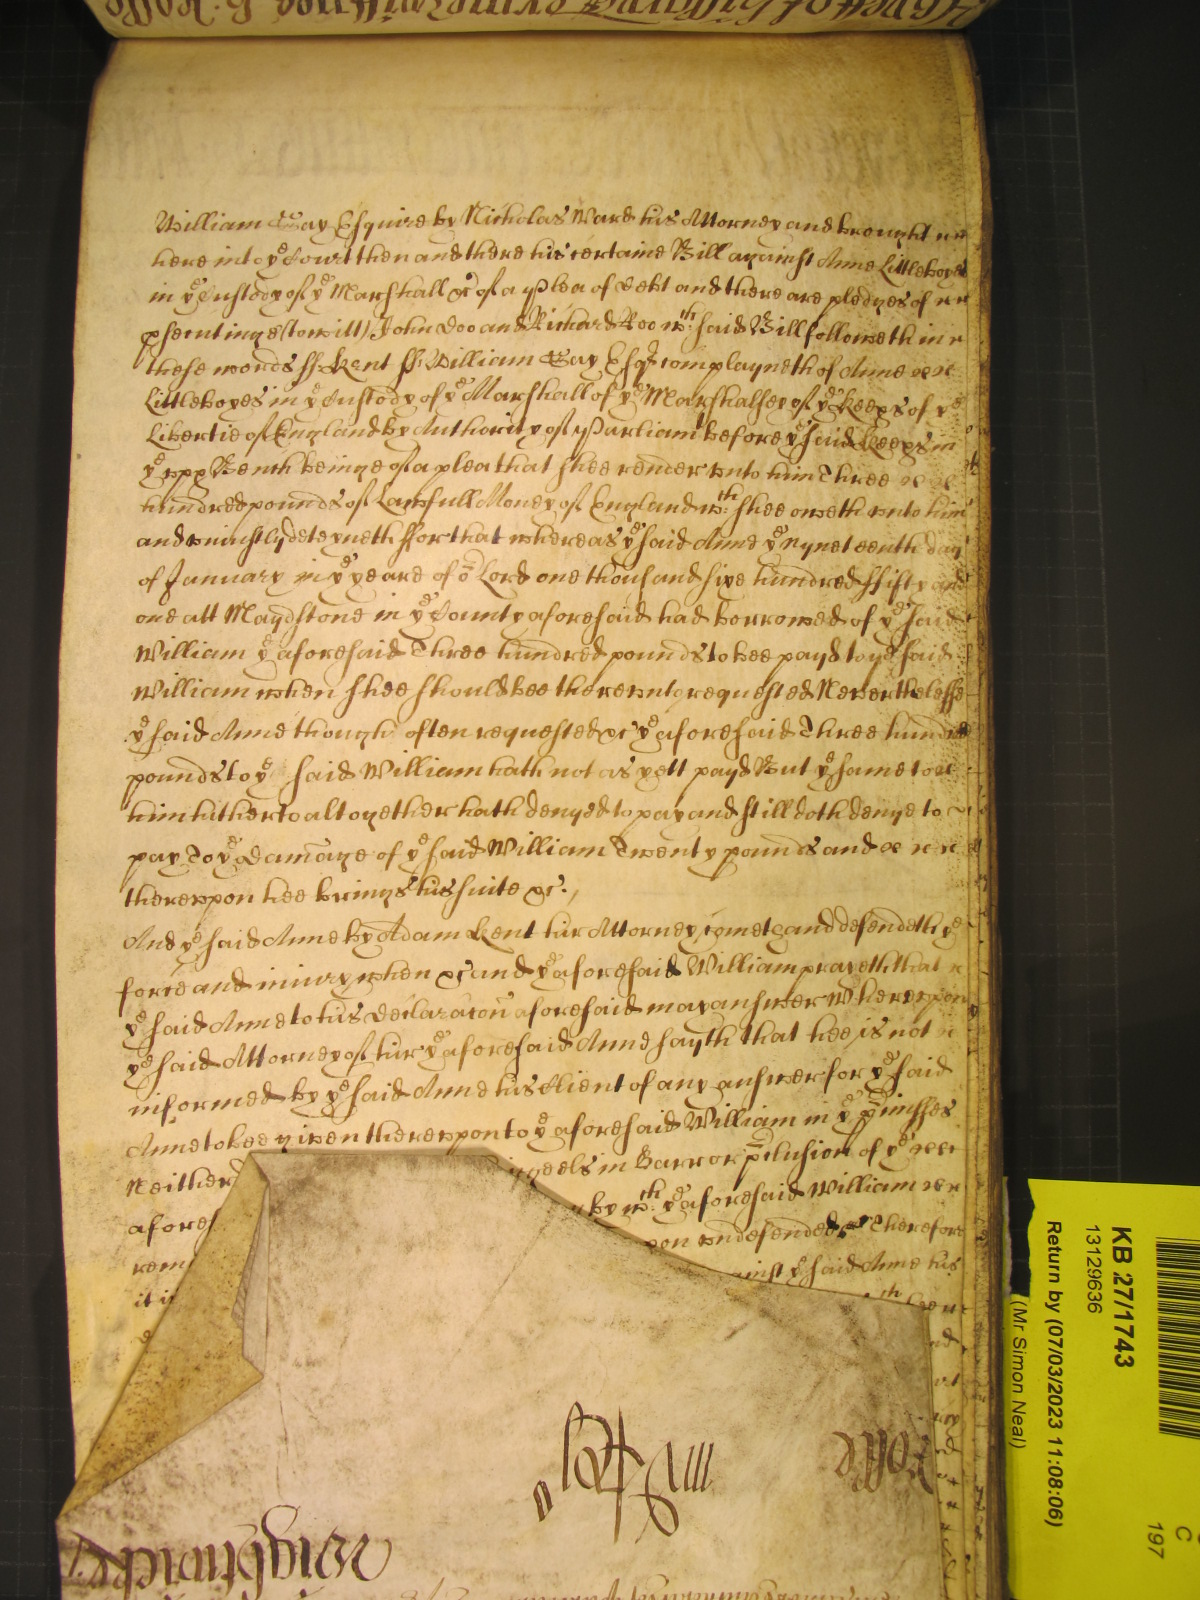 William Gay Esquire by Nicholas Ward his Attorney and brought
here into ye Court then and there his certaine Bill against Anne Littleboyes
in ye Custody of ye Marshall &c of a Plea of debt and there are pledges of
psecutinge (to witt) John Doo and Richard Roo wch said Bill followeth in
these words ss Kent ss William Gay Esqr complayneth of Anne
Littleboyes in ye Custody of ye Marshall of ye Marshalsey of ye Keeps of ye
Libertie of England by Authority of Parliamt before ye said Keeps in
ye upp Bench beinge of a plea that shee render unto him Three
hundred pounds of Lawfull Money of England wch shee oweth unto him
and uniustly deteyneth ffor that whereas ye said Anne ye Nyneteenth day
of January in ye yeare of or Lord one thousand sixe hundred ffifty and
one att Maydstone in ye County aforesaid had borrowed of ye said
William ye aforesaid Three hundred pounds to bee payd to ye said
William when shee should bee thereunto requested Neverthelesse
ye said Anne though often requested &c ye aforesaid Three hundred
pounds to ye said William hath not as yett payd But ye same to
him hitherto altogether hath denyed to pay and still doth denye to
pay To ye Damage of ye said William Twenty pounds and
thereupon hee brings his suite &c.
And ye said Anne by Adam Kent hir Attorney comets and defendeth ye
force and iniury when &c and ye aforesaid William prayeth that
ye said Anne to his declaracon aforesaid may answer Whereupon
ye said Attorney of hir ye aforesaid Anne sayth that hee is not
informed by ye said Anne his Client of any answer for ye said
Anne to bee given thereupon to ye aforesaid William in ye pmisses
Neither in Barr or pclusion of ye
afores by wch ye aforesaid William
rem undefended &c Therefore
it is ye said Anne his
Rolle
KB 27/1743
13129636
Return by (07/03/2023 11:08:06)
(Mr Simon Neal)
C
197